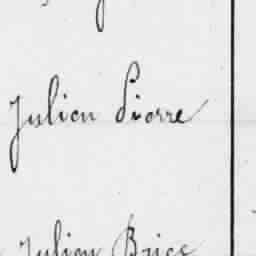 Julien Pierre
Julien Brice